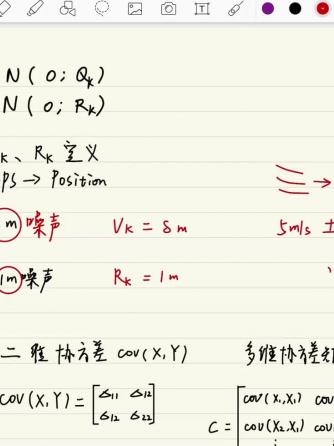 N ( 0 ; Qk )
N ( 0 ; Rk )
k、Rk 定义
PS → Position
m 噪声 Vk = δ m 5m/s ±
1m 噪声 Rk = 1m
二维协方差 cov(X,Y) 多维协方差
cov(X,Y) = [ δ11 δ12
δ12 δ22 ]
C = [ cov(X1,X1) cov
cov(X2,X1) cov